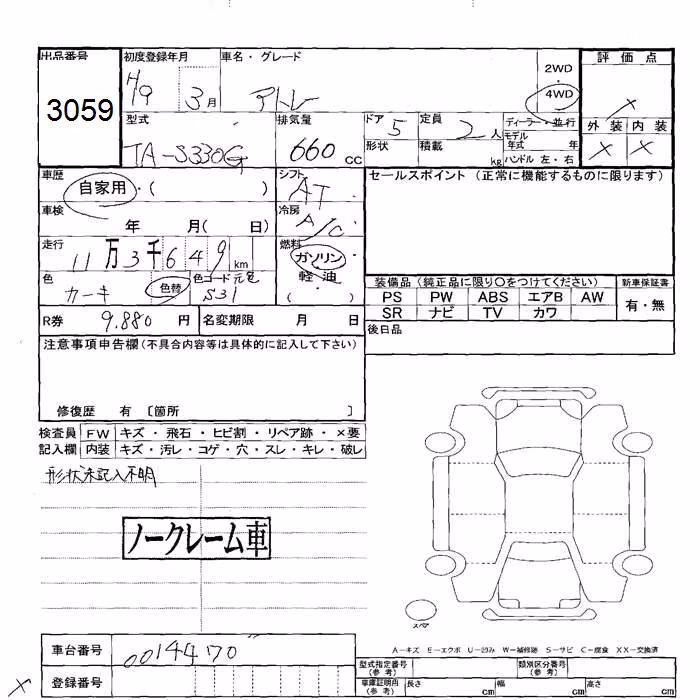 出品番号
3059
初度登録年月
H9 3月
車名・グレード
アトレー
2WD
4WD
評価点
×
外装 内装
× ×
型式
TA-S330G
排気量
660 cc
ドア 5
定員 2人
ディーラー・並行
モデル年式 年
形状
積載 kg
ハンドル 左・右
車歴
自家用・( )
シフト
AT
セールスポイント (正常に機能するものに限ります)
車検
年 月( 日)
冷房
A/C
走行
11万3千649km
燃料
ガソリン
軽・油
( ・ )
色
カーキ
色替
色コード 元色
S31
装備品 (純正品に限り○をつけてください)
新車保証書
PS PW ABS エアB AW
SR ナビ TV カワ
有・無
R券 9,880 円
名変期限 月 日
後日品
注意事項申告欄(不具合内容等は具体的に記入して下さい)
修復歴 有 〔箇所 〕
検査員 FW キズ・飛石・ヒビ割・リペア跡・×要
記入欄 内装 キズ・汚レ・コゲ・穴・スレ・キレ・破レ
形状未記入不明
ノークレーム車
スペア
A-キズ E-エクボ U-凹み W-補修跡 S-サビ C-腐食 XX-交換済
車台番号
0014470
型式指定番号
(参考)
類別区分番号
(参考)
× 登録番号
車庫証明用
(参考)
長さ cm
幅 cm
高さ cm